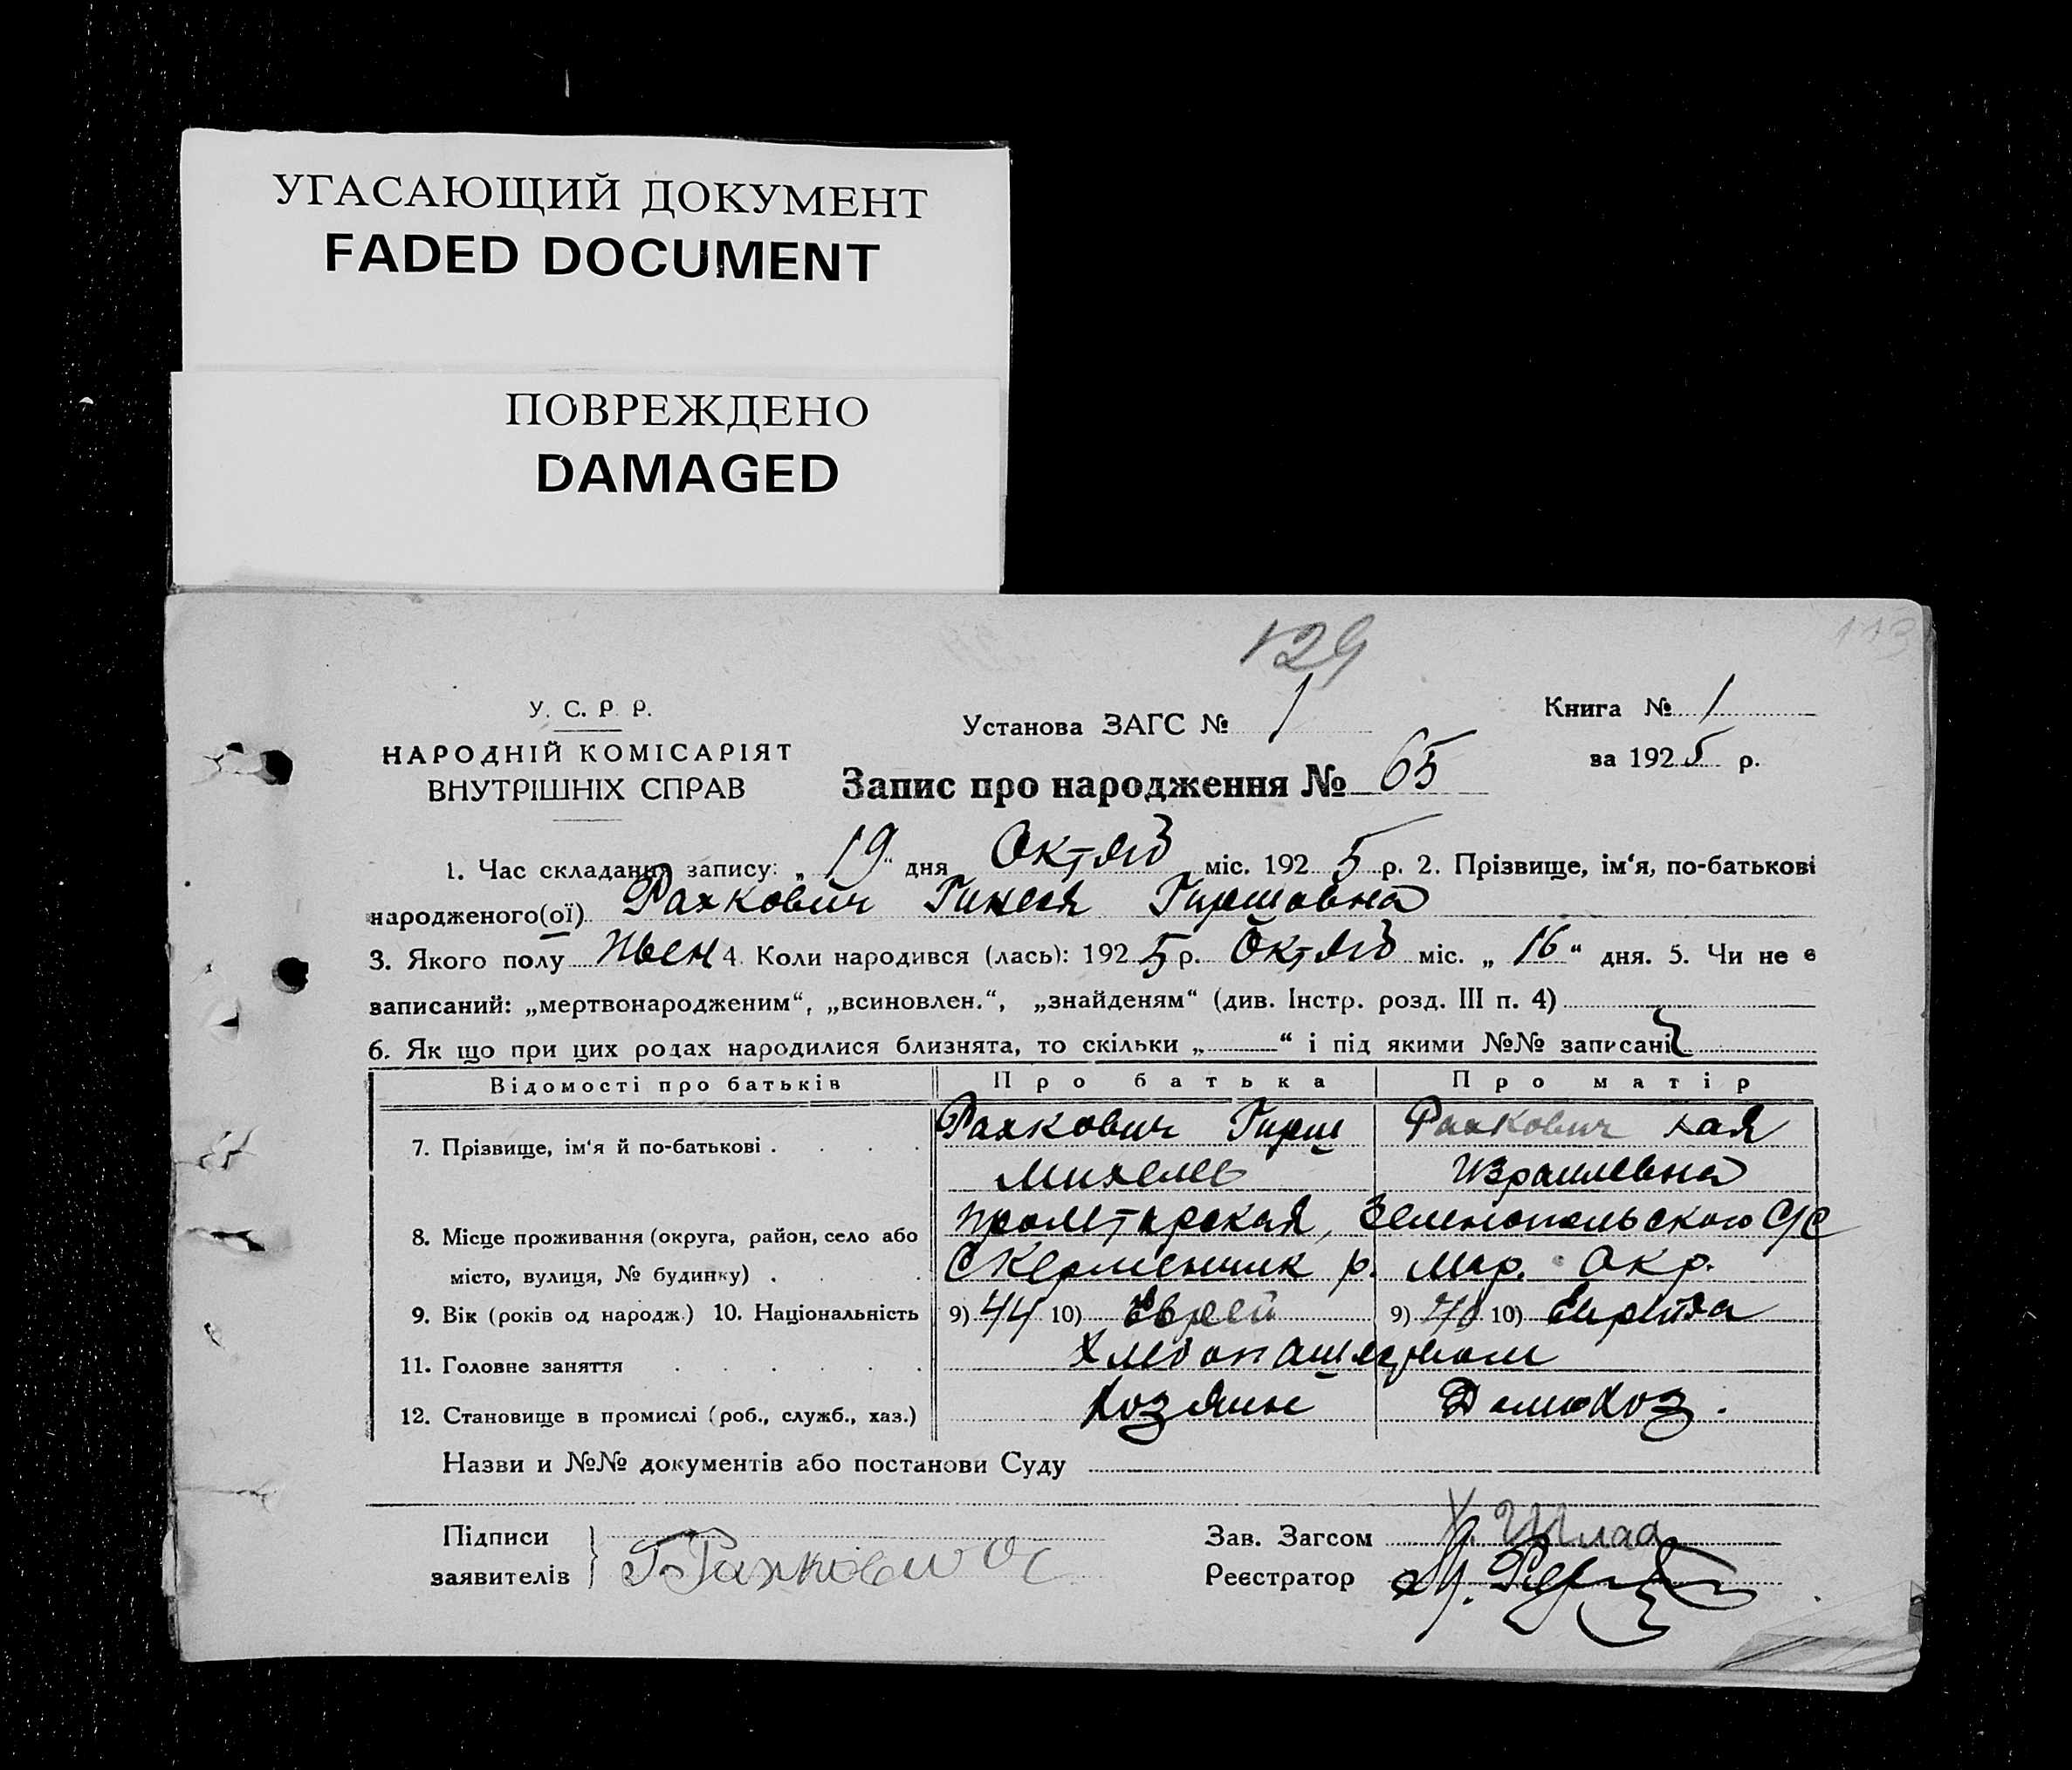 УГАСАЮЩИЙ ДОКУМЕНТ
FADED DOCUMENT
ПОВРЕЖДЕНО
DAMAGED
129
113
У. С. Р. Р.
НАРОДНІЙ КОМІСАРІЯТ
ВНУТРІШНІХ СПРАВ
Установа ЗАГС № 1
Книга № 1
за 1925 р.
Запис про народження № 65
1. Час складання запису: „19“ дня Октяб міс. 1925 р. 2. Прізвище, ім‘я, по-батькові
народженого(ої) Рахкович Гинеся Гиршовна
3. Якого полу Жен 4. Коли народився (лась): 1925 р. Октяб міс. „16“ дня. 5. Чи не є
записаний: „мертвонародженим“, „всиновлен.“, „знайденям“ (див. Інстр. розд. III п. 4)
6. Як що при цих родах народилися близнята, то скільки „ “ і під якими №№ записані
Відомості про батьків Про батька Про матір
7. Прізвище, ім‘я й по-батькові Рахкович Гирш Рахкович Хая
Михелев Израилевна
8. Місце проживання (округа, район, село або Пролетарская, Зеленопольского С/С
місто, вулиця, № будинку) С Керменчик р. Мар. Окр.
9. Вік (років од народж.) 10. Національність 9) 44 10) Еврей 9) 40 10) Еврейка
11. Головне заняття Хлебопашеством
12. Становище в промислі (роб., служб., хаз.) Хозяин Домохоз.
Назви и №№ документів або постанови Суду
Підписи
заявителів Г Рахкович
Зав. Загсом
Реєстратор